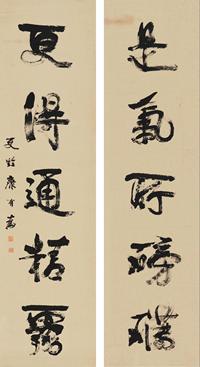 是氣所磅礴
得通精靈
更甡康有為